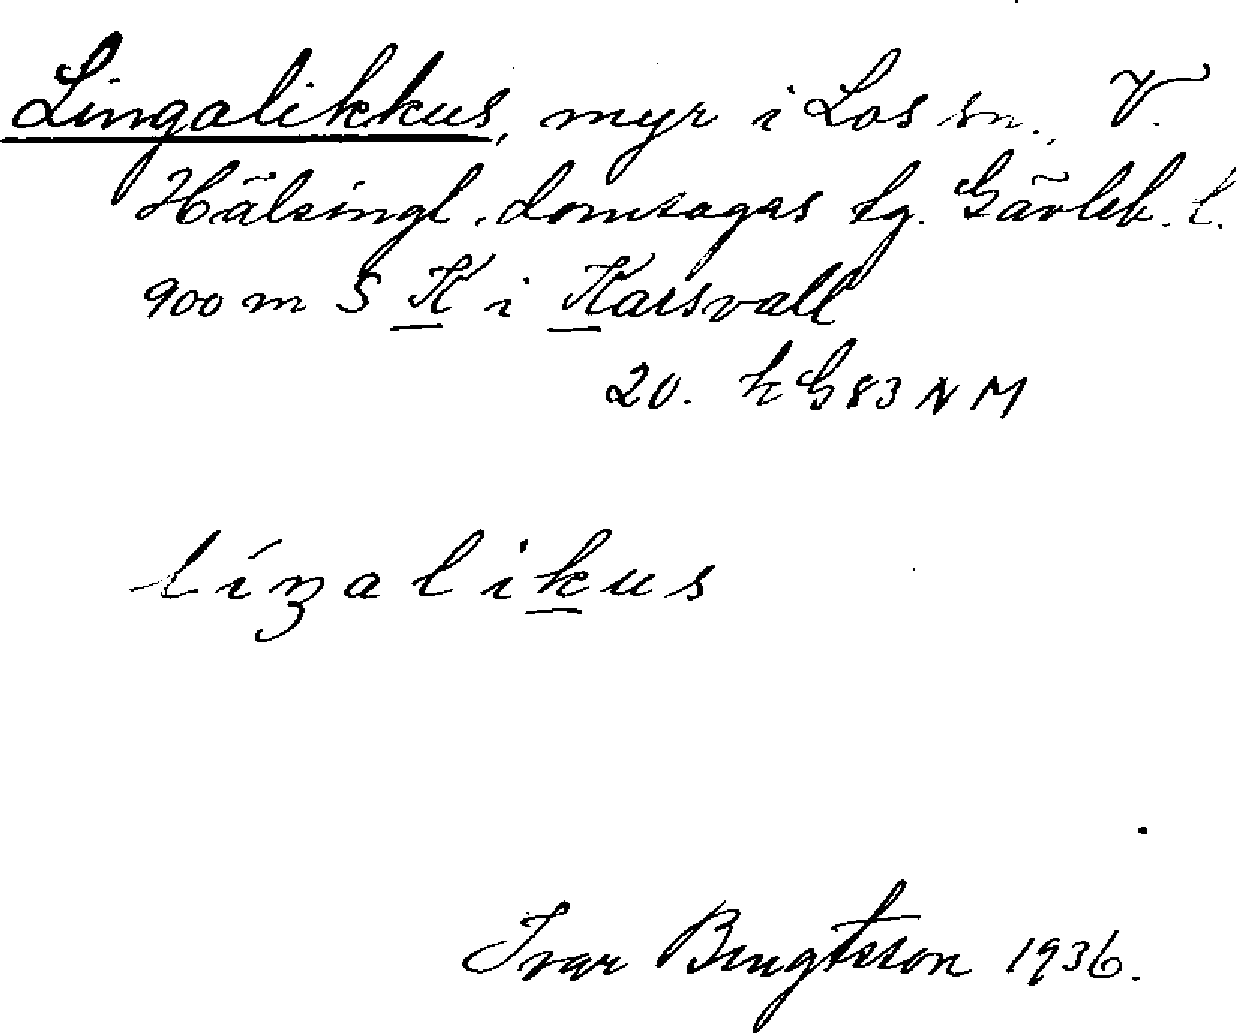 Lingalikkus, myr i Los sn., V.
Hälsingl. domsagas tg. Gävleb. l.
900 m S K i Karsvall
20. k G 83 N M
língalikus
Ivar Bengtsson 1936.